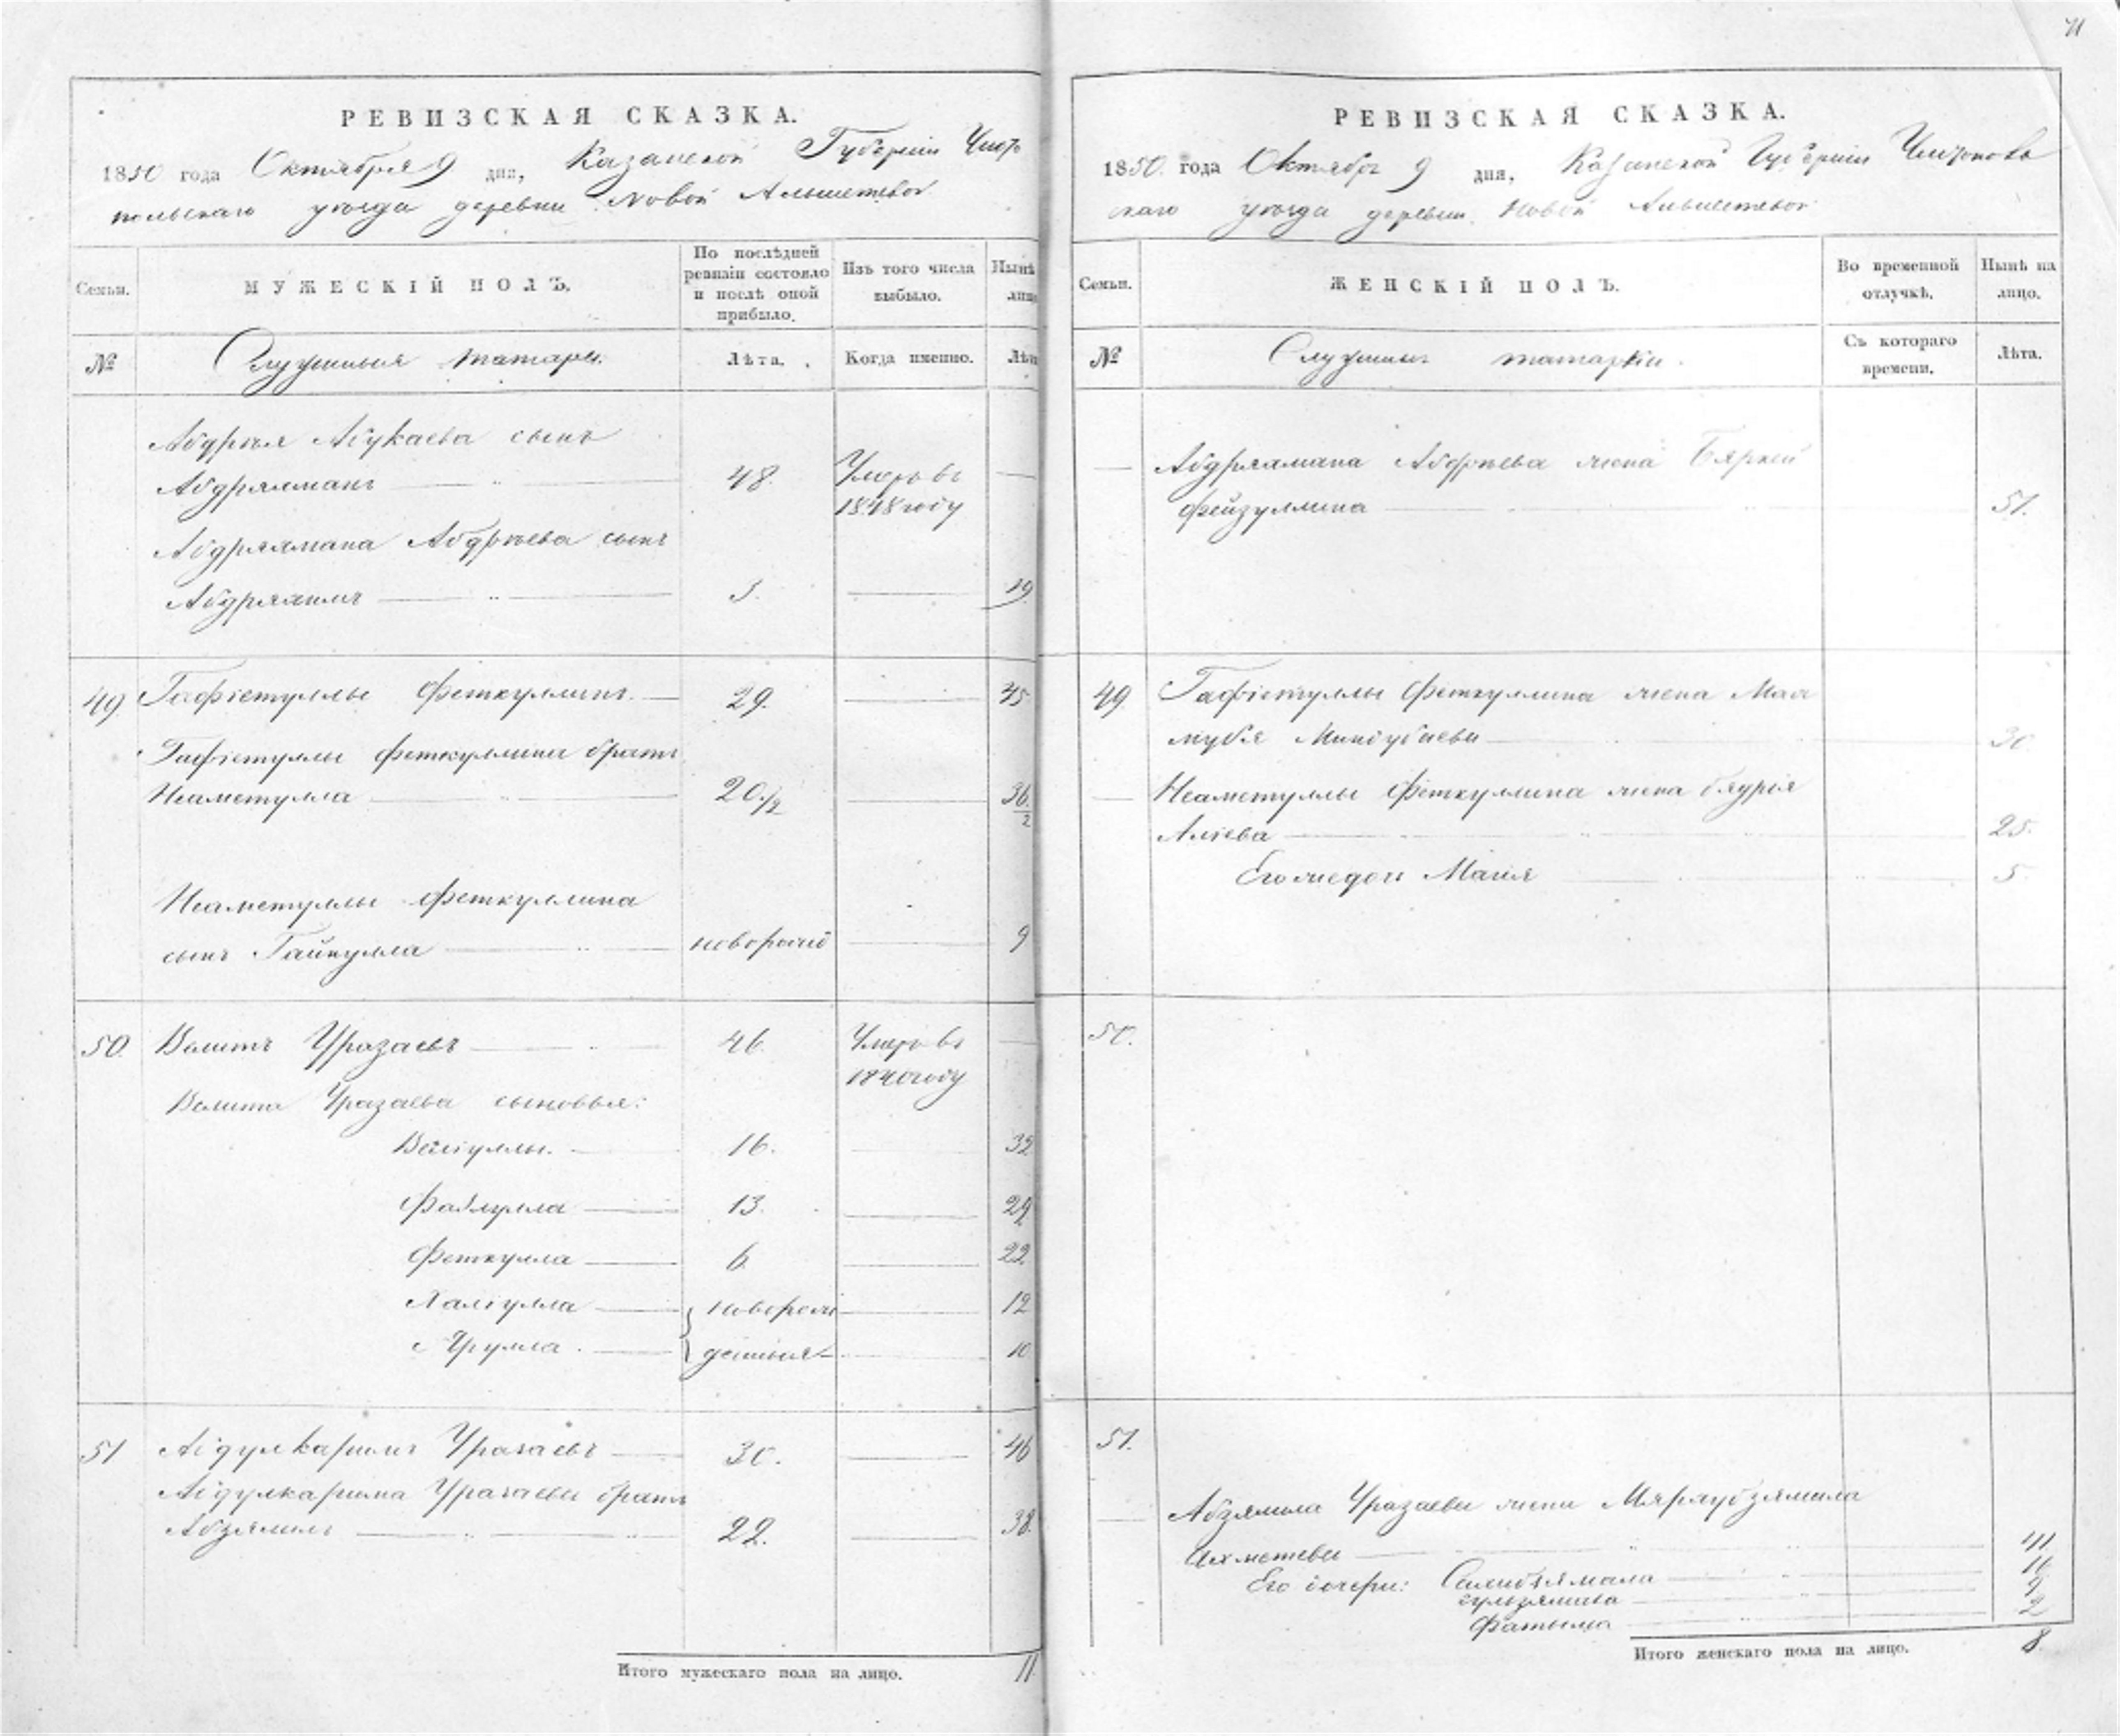 71
РЕВИЗСКАЯ СКАЗКА.
1850 года Октября 9 дня, Казанской Губерніи Чисто
польскаго уезда деревни Новой Альметевой
Семьи. МУЖЕСКІЙ ПОЛЪ. По послѣдней ревизіи состояло и послѣ оной прибыло. Изъ того числа выбыло. Нынѣ лицо
№ Служилыя татары. Лѣта. Когда именно. Лѣта
Абдрѣя Абукаева сынъ
Абдряхманъ 48. Умеръ въ
1848 году
Абдряхмана Абдрѣева сынъ
Абдряхимъ 3. 19
49. Гафіетуллы Феткуллинъ. 29. 45
Гафіетуллы Феткуллина братъ
Неаметулла 20 1/2 36/2
Неаметуллы Феткуллина
сынъ Гайнулла новорожд 9
50. Валитъ Уразаевъ 46. Умеръ въ
1840 году
Валита Уразаева сыновья:
Валіуллы. 16. 32
Фазлулла 13. 29
Феткулла 6 22
Халіулла новорож 12
денныя 10
51 Абдулкаримъ Уразаевъ 30. 46
Абдулкарима Уразаева братъ
Абзямилъ 22. 38.
Итого мужескаго пола на лицо. 11
РЕВИЗСКАЯ СКАЗКА.
1850 года Октября 9 дня, Казанской Губерніи Чистополь
скаго уезда деревни Новой Альметевой
Семьи. ЖЕНСКІЙ ПОЛЪ. Во временной отлучкѣ. Нынѣ на лицо.
№ Служилыя татарки. Съ котораго времени. Лѣта.
Абдряхмана Абдрѣева жена Бяркей
Фейзуллина 51.
49. Гафіетуллы Феткуллина жена Мах
мубя 30
Неаметуллы Феткуллина жена Бядрія
Аліева 25.
Его же дочь 5
50.
51.
Абзямила Уразаева жена Мяряубзямала
Ахметева 41
Его дочери: Салибзямала 10
Гульзямига 9
Фатыма 2
Итого женскаго пола на лицо. 8.